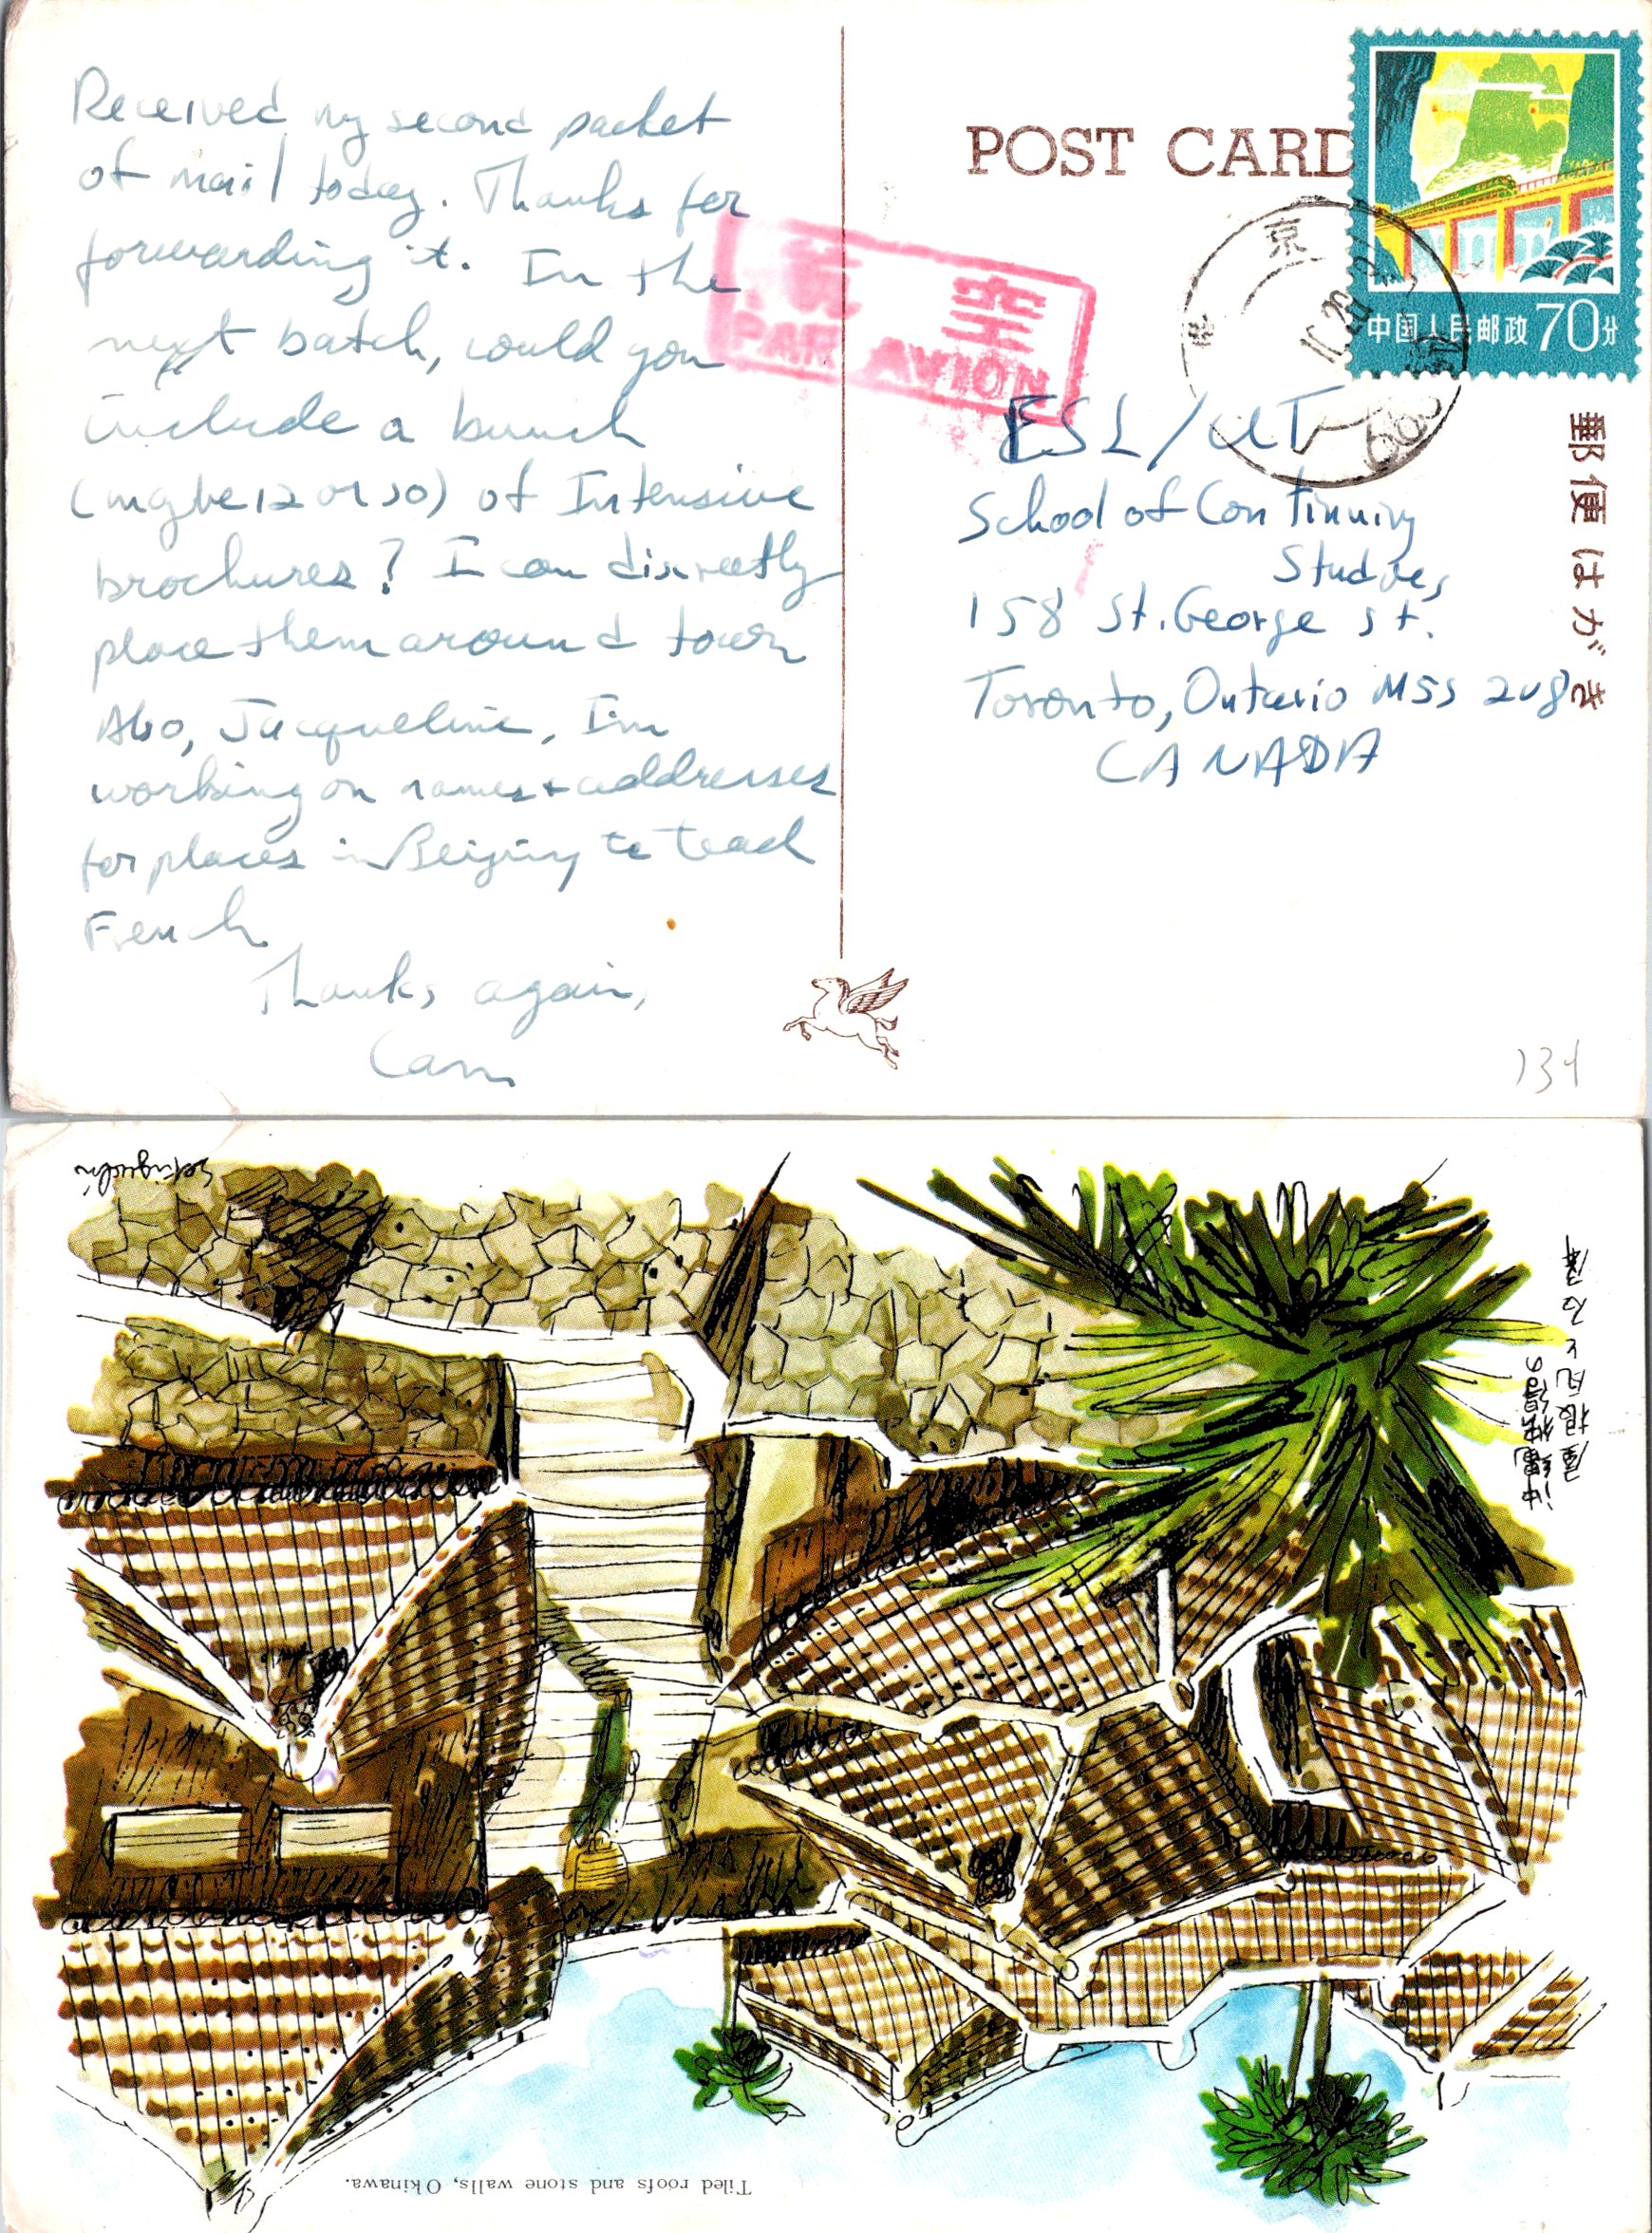 Received my second packet
of mail today. Thanks for
forwarding it. In the
next batch, could you
include a bunch
(maybe 12 or so) of Intensive
brochures? I can discreetly
place them around town
Also, Jacqueline, I'm
working on names + addresses
for places in Beijing to teach
French
Thanks again,
Cam
POST CARD
中国人民邮政 70分
航空
PAR AVION
京
ESL/UT
School of Continuing
Studies
158 St. George St.
Toronto, Ontario M5S 2V8
CANADA
郵便はがき
134
沖縄 那覇の
屋根瓦と石
Tiled roofs and stone walls, Okinawa.